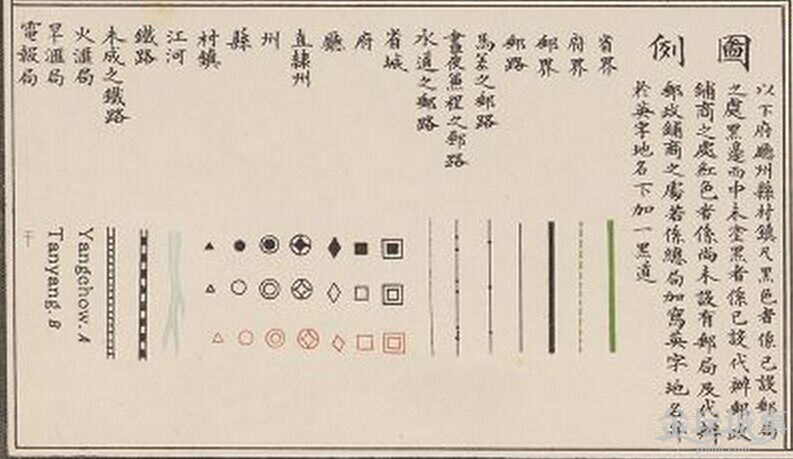 圖例
以下府廳州縣村鎮凡黑色者係已設郵局
之處黑邊而中未塗黑者係已設代辦郵政
鋪商之處紅色者係尚未設有郵局及代辦
郵政鋪商之處若係總局加寫英字地名
於英字地名下加一黑道
省界
府界
郵界
郵路
馬差之郵路
晝夜兼程之郵路
水道之郵路
省城
府
廳
直隸州
州
縣
村鎮
江河
鐵路
未成之鐵路
火滙局
旱滙局
電報局
Yangchow. A
Tanyang. B